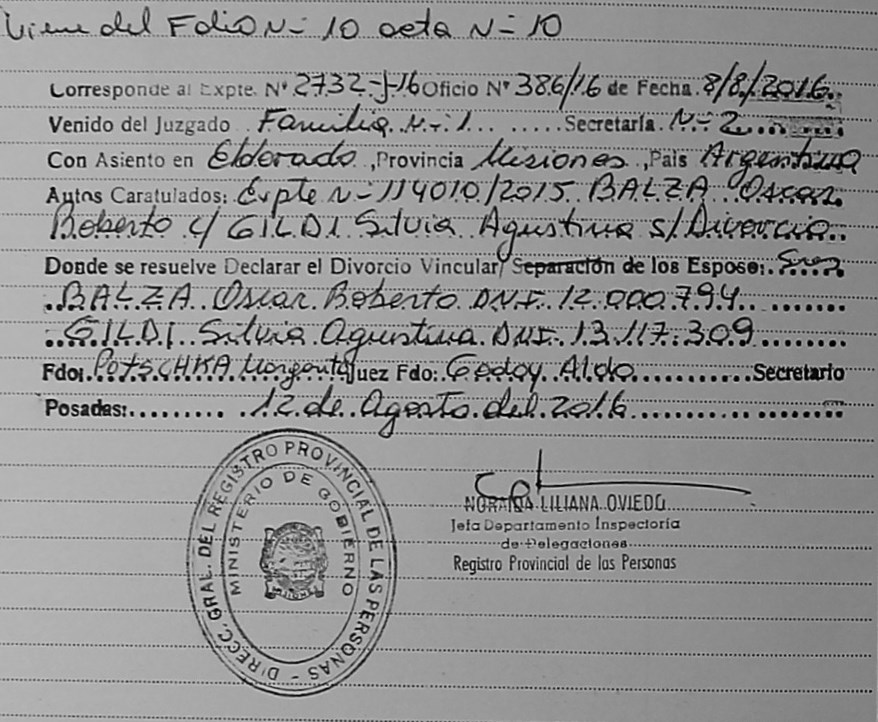 Viene del Folio N- 10 acta N- 10
Corresponde al Expte. N° 2732-J-16 Oficio N° 386/16 de Fecha 8/8/2016
Venido del Juzgado Familia N-1 Secretaría N-2
Con Asiento en Eldorado, Provincia Misiones, País Argentina
Autos Caratulados: Expte N-114010/2015 BALZA Oscar
Roberto c/ GILDI Silvia Agustina s/ Divorcio
Donde se resuelve Declarar el Divorcio Vincular/ Separación de los Esposo: Sres
BALZA Oscar Roberto DNI. 12.000.794
GILDI Silvia Agustina DNI. 13.117.309
Fdo: POTSCHKA Juez Fdo: Godoy Aldo Secretario
Posadas: 12 de Agosto del 2016
DIRECC. GRAL. DEL REGISTRO PROVINCIAL DE LAS PERSONAS -
MINISTERIO DE GOBIERNO
LILIANA OVIEDO
Jefa Departamento Inspectoría
de Delegaciones
Registro Provincial de las Personas